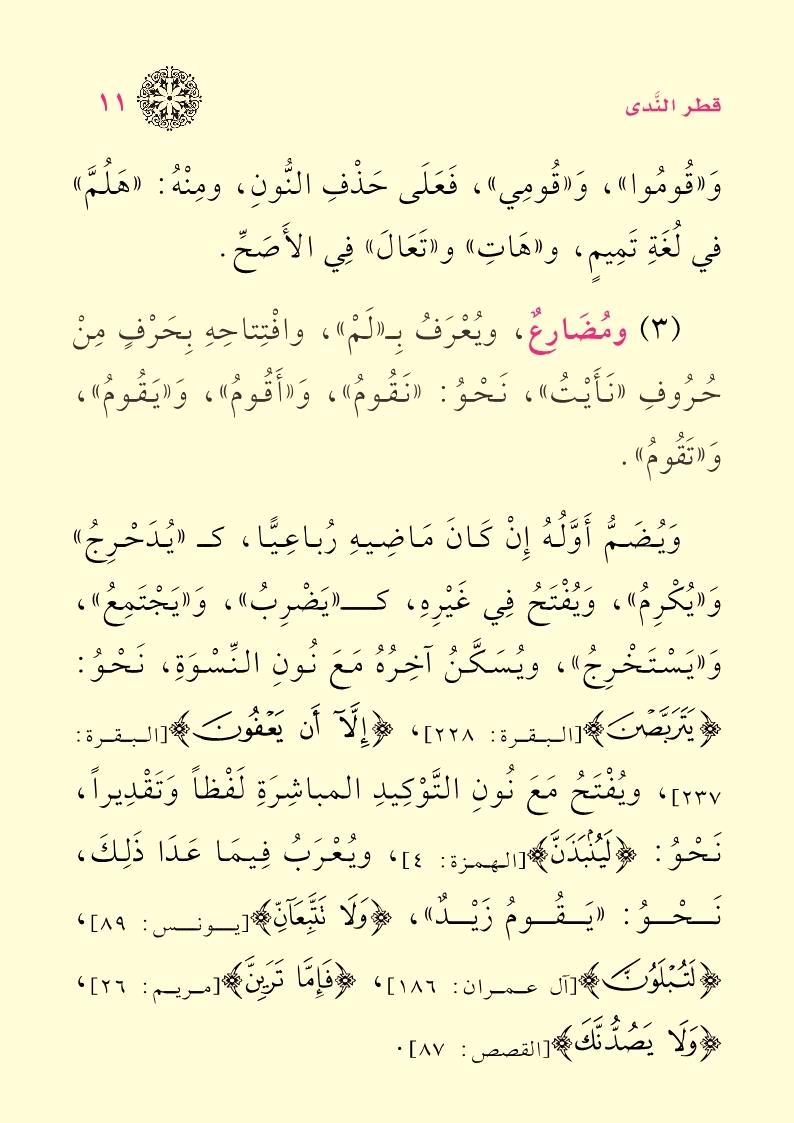 قطر النَّدى ١١
وَ«قُومُوا»، وَ«قُومِي»، فَعَلَى حَذْفِ النُّونِ، ومِنْهُ: «هَلُمَّ»
في لُغَةِ تَمِيمٍ، و«هَاتِ» و«تَعَالَ» فِي الأَصَحِّ.
(٣) ومُضَارِعٌ، ويُعْرَفُ بِـ«لَمْ»، وافْتِتاحِهِ بِحَرْفٍ مِنْ
حُرُوفِ «نَأَيْتُ»، نَحْوُ: «نَقُومُ»، وَ«أَقُومُ»، وَ«يَقُومُ»،
وَ«تَقُومُ».
وَيُضَمُّ أَوَّلُهُ إِنْ كَانَ مَاضِيهِ رُباعِيًّا، كـ «يُدَحْرِجُ»
وَ«يُكْرِمُ»، وَيُفْتَحُ فِي غَيْرِهِ، كـ«يَضْرِبُ»، وَ«يَجْتَمِعُ»،
وَ«يَسْتَخْرِجُ»، ويُسَكَّنُ آخِرُهُ مَعَ نُونِ النِّسْوَةِ، نَحْوُ:
﴿يَتَرَبَّصْنَ﴾[البقرة: ٢٢٨]، ﴿إِلَّآ أَن يَعْفُونَ﴾[البقرة:
٢٣٧]، ويُفْتَحُ مَعَ نُونِ التَّوْكِيدِ المباشِرَةِ لَفْظاً وَتَقْدِيراً،
نَحْوُ: ﴿لَيُنۢبَذَنَّ﴾[الهمزة: ٤]، ويُعْرَبُ فِيمَا عَدَا ذَلِكَ،
نَحْوُ: «يَقُومُ زَيْدٌ»، ﴿وَلَا نَتَّبِعَآنِّ﴾[يونس: ٨٩]،
﴿لَتُبْلَوُنَّ﴾[آل عمران: ١٨٦]، ﴿فَإِمَّا تَرَيِنَّ﴾[مريم: ٢٦]،
﴿وَلَا يَصُدُّنَّكَ﴾[القصص: ٨٧].